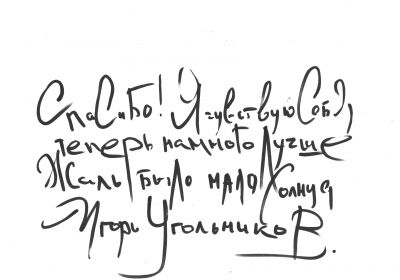 Спасибо! Я чувствую Себя,
теперь намного Лучше
Жаль было мало Солнца
Игорь Угольников.